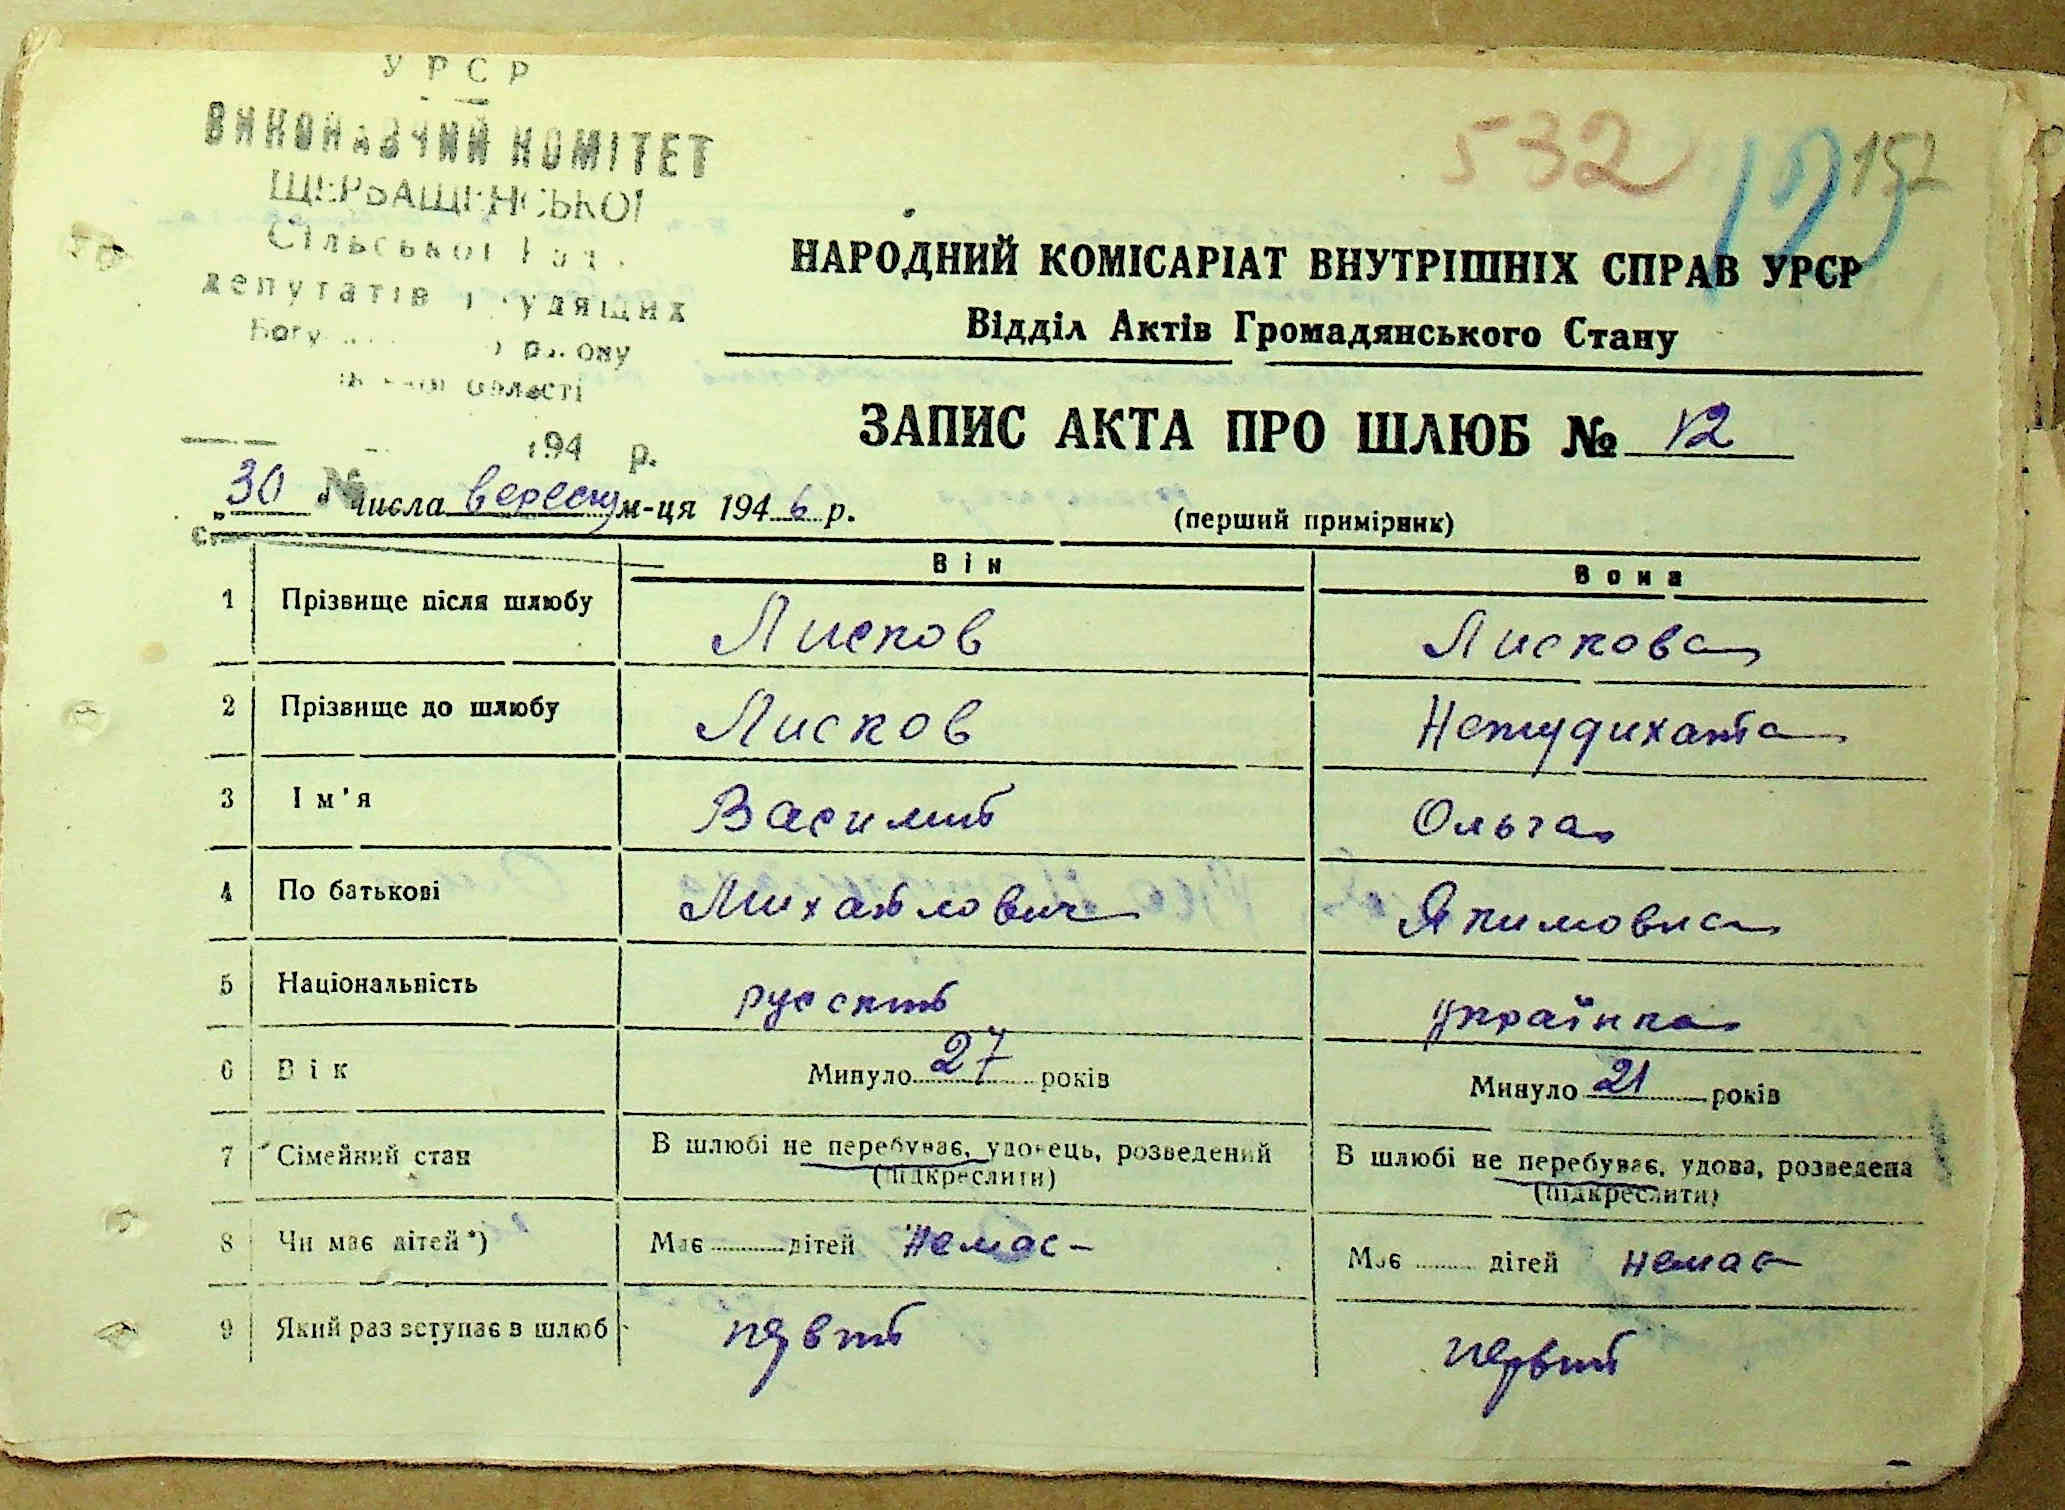 УРСР
ВИКОНАВЧИЙ КОМІТЕТ
ЩЕРБАШЕНСЬКОЇ
Сільської
депутатів трудящих
області
194 р.
532 152
НАРОДНИЙ КОМІСАРІАТ ВНУТРІШНІХ СПРАВ УРСР
Відділ Актів Громадянського Стану
ЗАПИС АКТА ПРО ШЛЮБ № 12
„30“ числа вересня м-ця 1946 р.
(перший примірник)
Він Вона
1 Прізвище після шлюбу Лисков Лискова
2 Прізвище до шлюбу Лисков Нетудихатка
3 Ім'я Василий Ольга
4 По батькові Михайлович Якимовна
5 Національність русский українка
6 Вік Минуло 27 років Минуло 21 років
7 Сімейний стан В шлюбі не перебуває, удовець, розведений В шлюбі не перебуває, удова, розведена
(підкреслити) (підкреслити)
8 Чи має дітей*) Має дітей немає Має дітей немає
9 Який раз вступає в шлюб первий первий